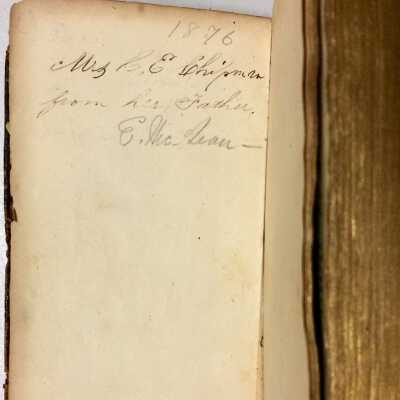 1876
Mrs C. E. Chipman
from her Father.
E. McLean —